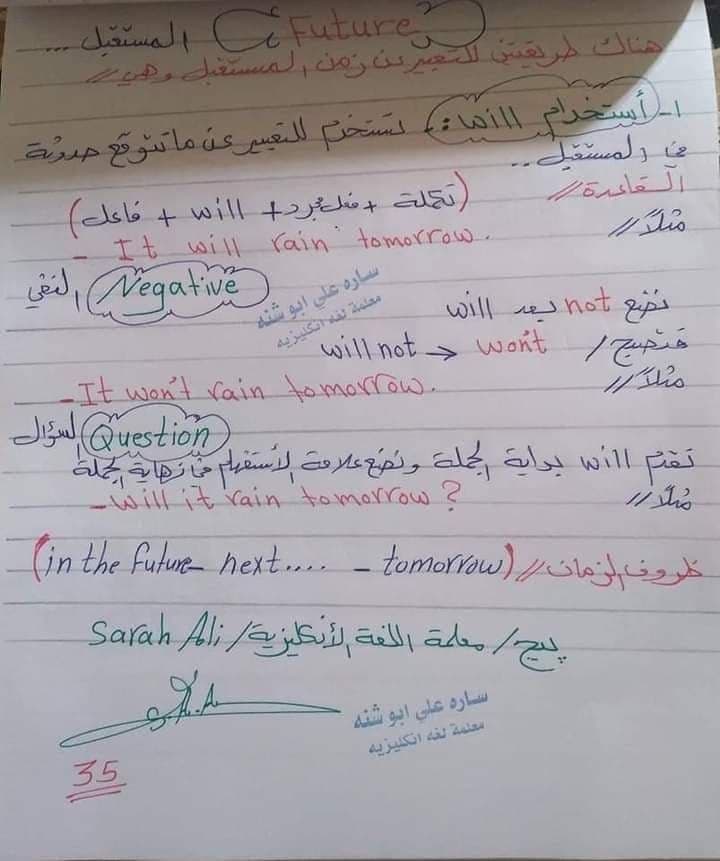 المستقبل Future ...
هناك طريقتين للتعبير عن زمن المستقبل وهي //
1- أستخدام will :- تستخدم للتعبير عن ما نتوقع حدوثة
في المستقبل ..
القاعدة // (تكملة + فعل مجرد + will + فاعل)
مثلاً //
- It will rain tomorrow.
Negative النفي
نضع not بعد will
فتصبح / will not → won't
مثلاً //
- It won't rain tomorrow.
ساره علي ابو شنه
معلمة لغه انكليزيه
Question السؤال
تقدم will بداية الجملة ونضع علامة الأستفهام في نهاية الجملة
مثلاً //
- Will it rain tomorrow?
ظروف الزمان // (in the future - next .... - tomorrow)
پيج / معلمة اللغة الأنكليزية / Sarah Ali
ساره علي ابو شنه
معلمة لغه انكليزيه
35